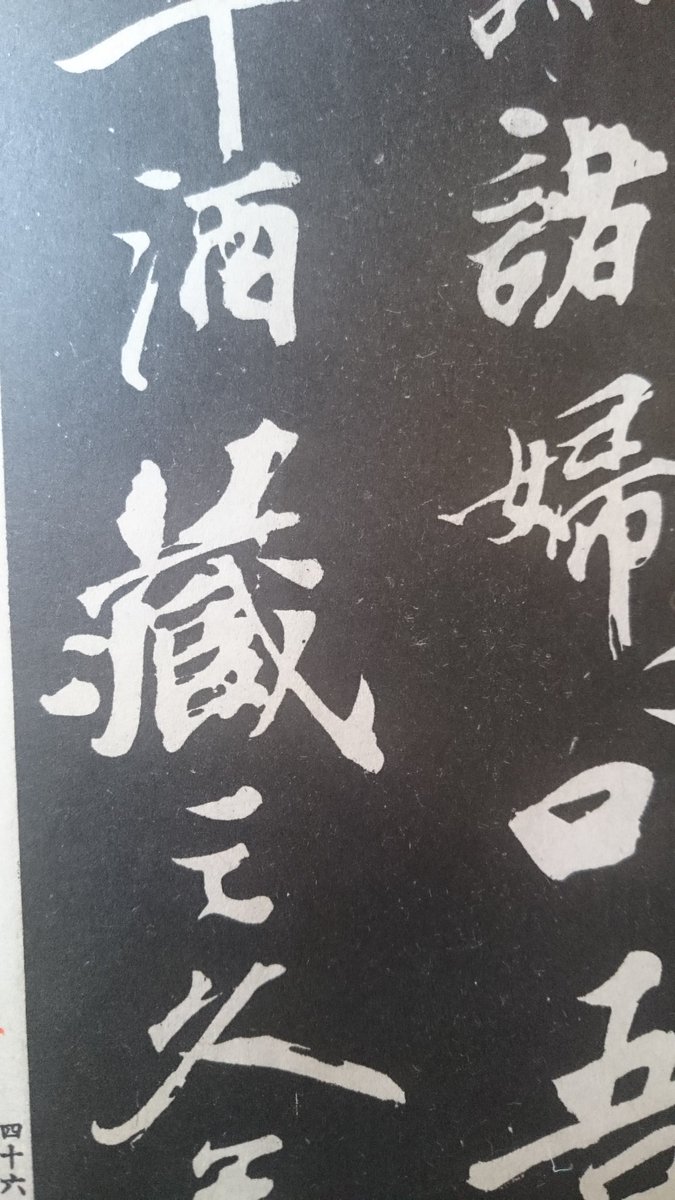 諸婦曰吾
酒藏之久
四十六